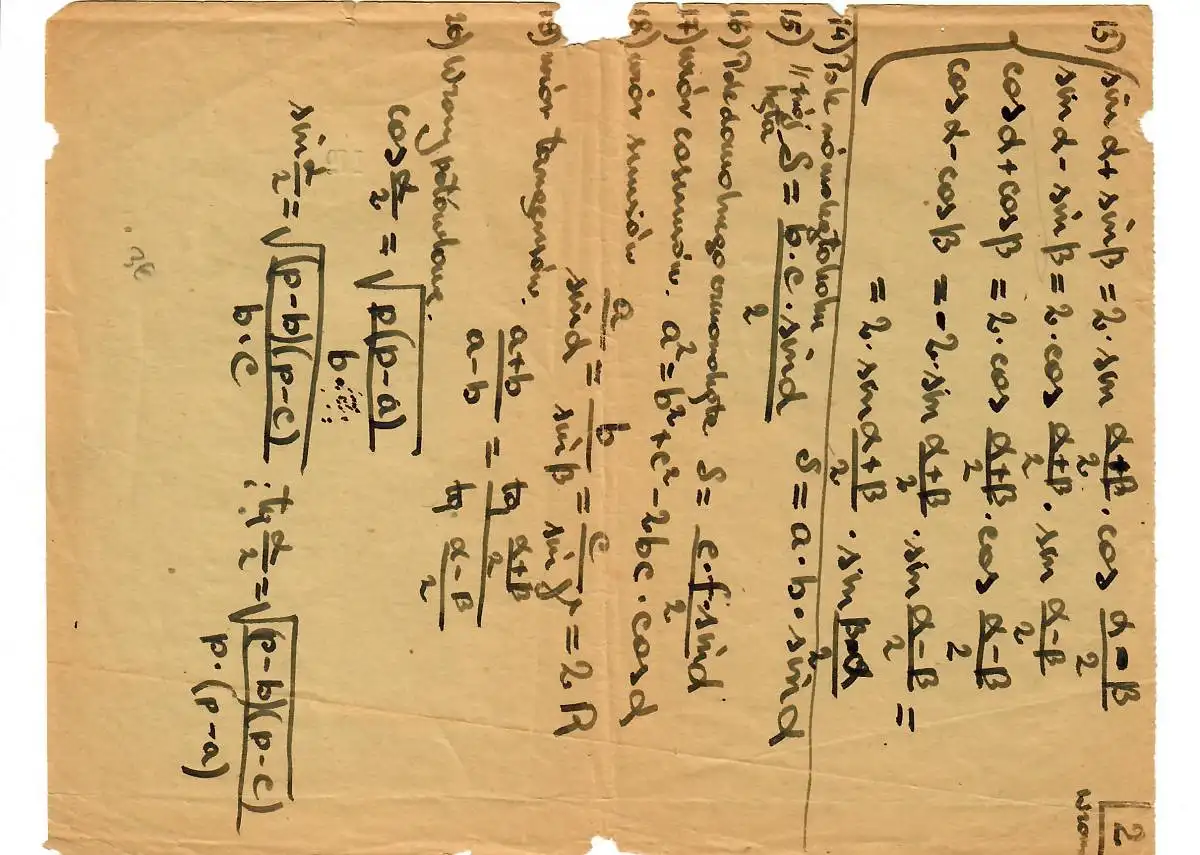 2
13) sin α + sin β = 2·sin (α+β)/2 · cos (α-β)/2
sin α - sin β = 2·cos (α+β)/2 · sin (α-β)/2
cos α + cos β = 2·cos (α+β)/2 · cos (α-β)/2
cos α - cos β = -2·sin (α+β)/2 · sin (α-β)/2 =
= 2·sin (α+β)/2 · sin (β-α)/2
14) Pole
15) S = b·c·sin α / 2 S = a·b·sin α
16) Pole S = e·f·sin α / 2
17) wzór cosinusów. a² = b² + c² - 2bc·cos α
18) wzór sinusów a/sin α = b/sin β = c/sin γ = 2R
19) wzór tangensów. (a+b)/(a-b) = tg (α+β)/2 / tg (α-β)/2
20) Wzory połówkowe.
cos α/2 = √(p(p-a) / b·c)
sin α/2 = √((p-b)(p-c) / b·c) ; tg α/2 = √((p-b)(p-c) / p·(p-a))